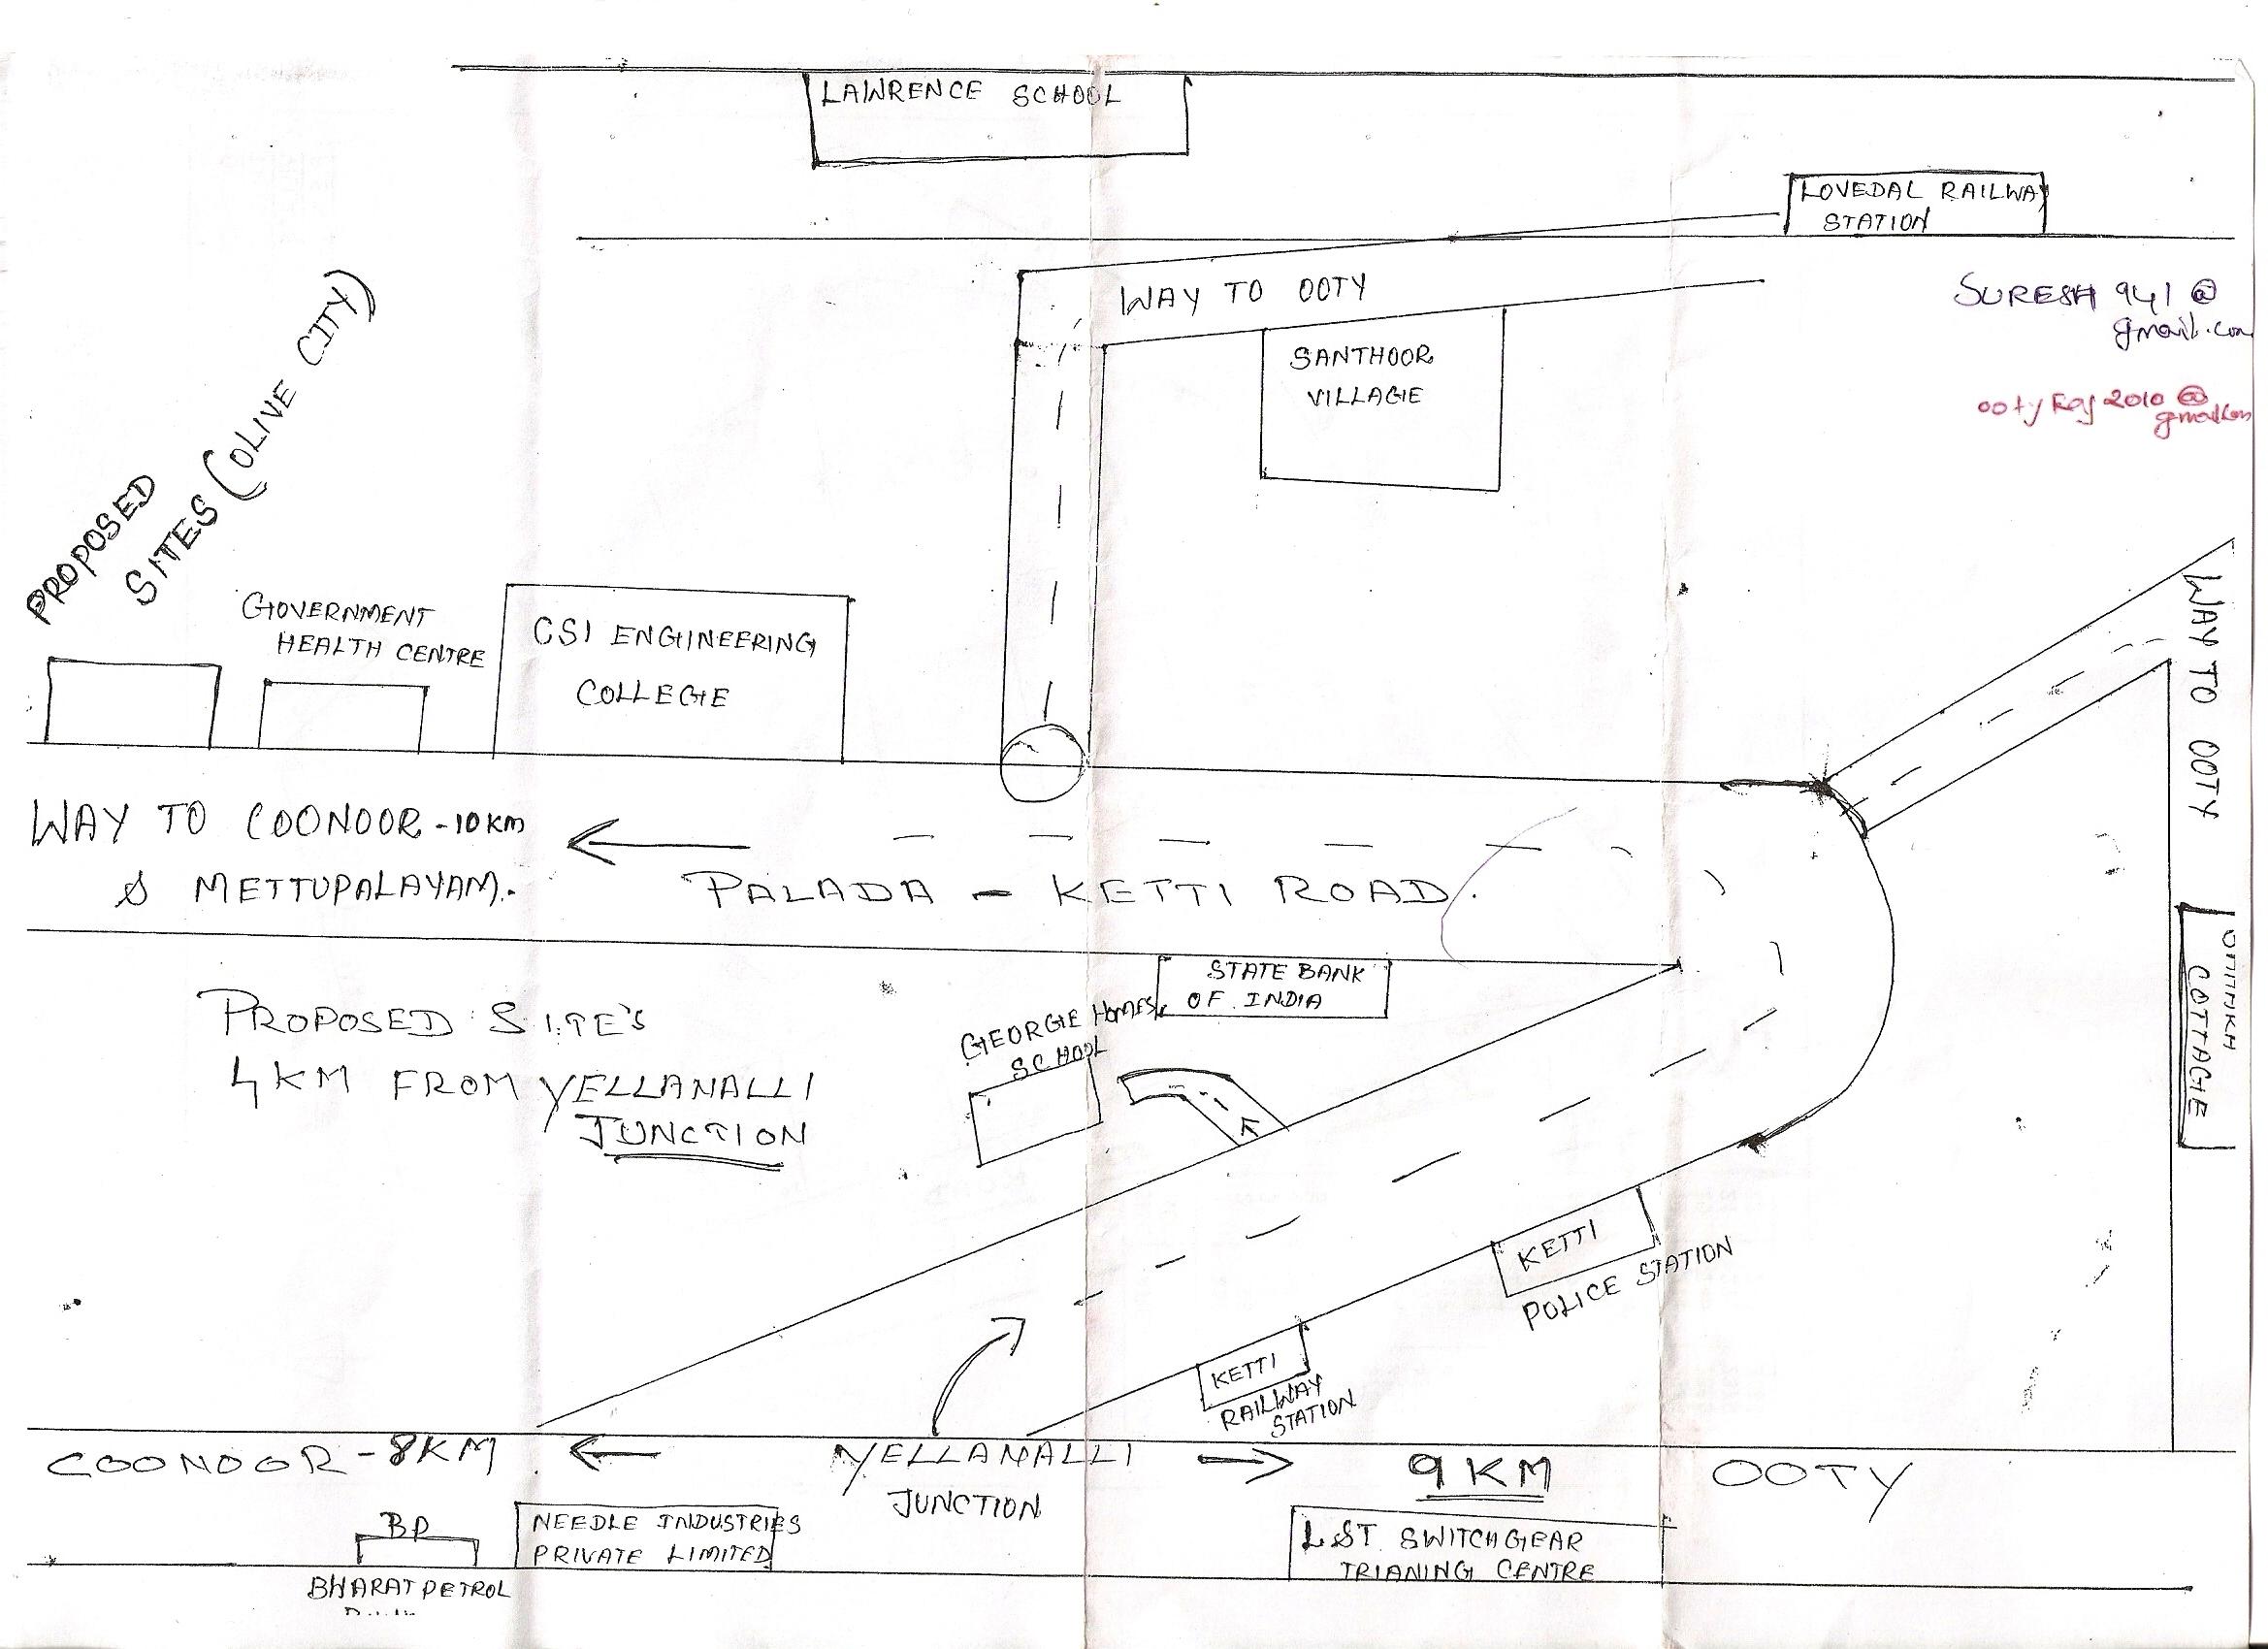 LAWRENCE SCHOOL
LOVEDAL RAILWAY
STATION
WAY TO OOTY
SURESH 941 @
gmail.com
SANTHOOR
VILLAGE
ooty Raj 2010 @
gmail.com
PROPOSED
SITES (OLIVE CITY)
GOVERNMENT
HEALTH CENTRE
CSI ENGINEERING
COLLEGE
WAY TO OOTY
WAY TO COONOOR - 10 KM
& METTUPALAYAM.
PALADA - KETTI ROAD.
COTTAGE
STATE BANK
OF INDIA
GEORGE HOMES
SCHOOL
PROPOSED SITE'S
4 KM FROM YELLANALLI
JUNCTION
KETTI
POLICE STATION
KETTI
RAILWAY
STATION
COONOOR - 8KM
YELLANALLI
JUNCTION
9 KM
OOTY
BP
BHARAT PETROL
NEEDLE INDUSTRIES
PRIVATE LIMITED
L&T SWITCHGEAR
TRIANING CENTRE